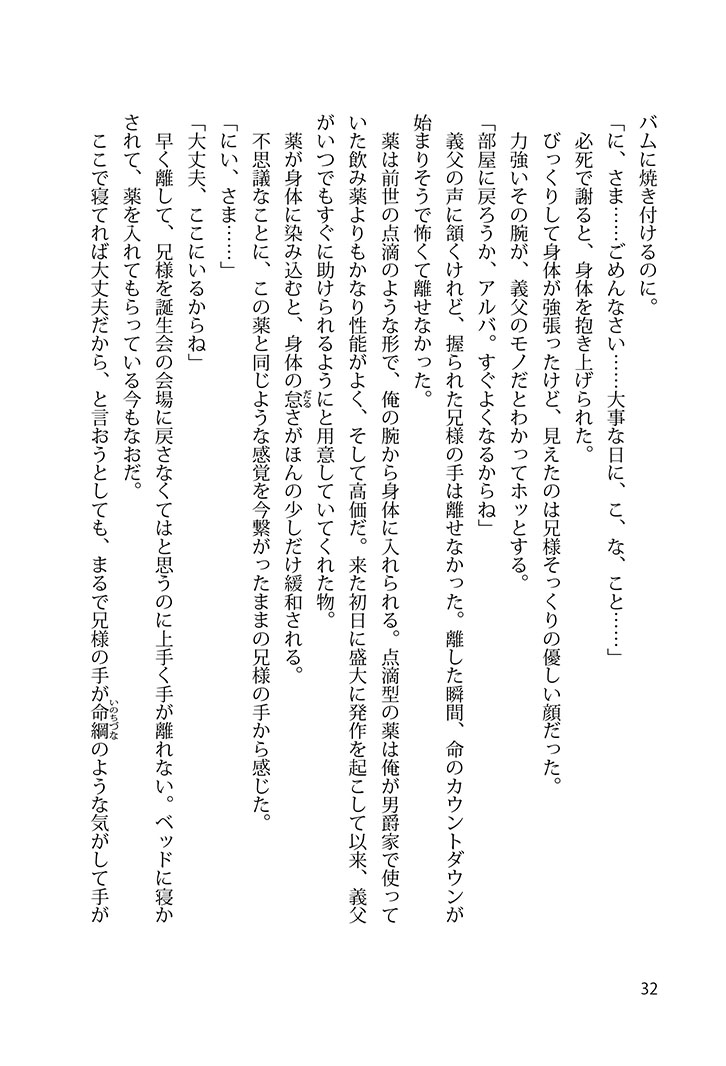 バムに焼き付けるのに。
「に、さま……ごめんなさい……大事な日に、こ、な、こと……」
必死で謝ると、身体を抱き上げられた。
びっくりして身体が強張ったけど、見えたのは兄様そっくりの優しい顔だった。
力強いその腕が、義父のモノだとわかってホッとする。
「部屋に戻ろうか、アルバ。すぐよくなるからね」
義父の声に頷くけれど、握られた兄様の手は離せなかった。離した瞬間、命のカウントダウンが
始まりそうで怖くて離せなかった。
薬は前世の点滴のような形で、俺の腕から身体に入れられる。点滴型の薬は俺が男爵家で使って
いた飲み薬よりもかなり性能がよく、そして高価だ。来た初日に盛大に発作を起こして以来、義父
がいつでもすぐに助けられるようにと用意していてくれた物。
薬が身体に染み込むと、身体の怠さがほんの少しだけ緩和される。
だる
不思議なことに、この薬と同じような感覚を今繋がったままの兄様の手から感じた。
「にい、さま……」
「大丈夫、ここにいるからね」
早く離して、兄様を誕生会の会場に戻さなくてはと思うのに上手く手が離れない。ベッドに寝か
されて、薬を入れてもらっている今もなおだ。
ここで寝てれば大丈夫だから、と言おうとしても、まるで兄様の手が命綱のような気がして手が
いのちづな
32